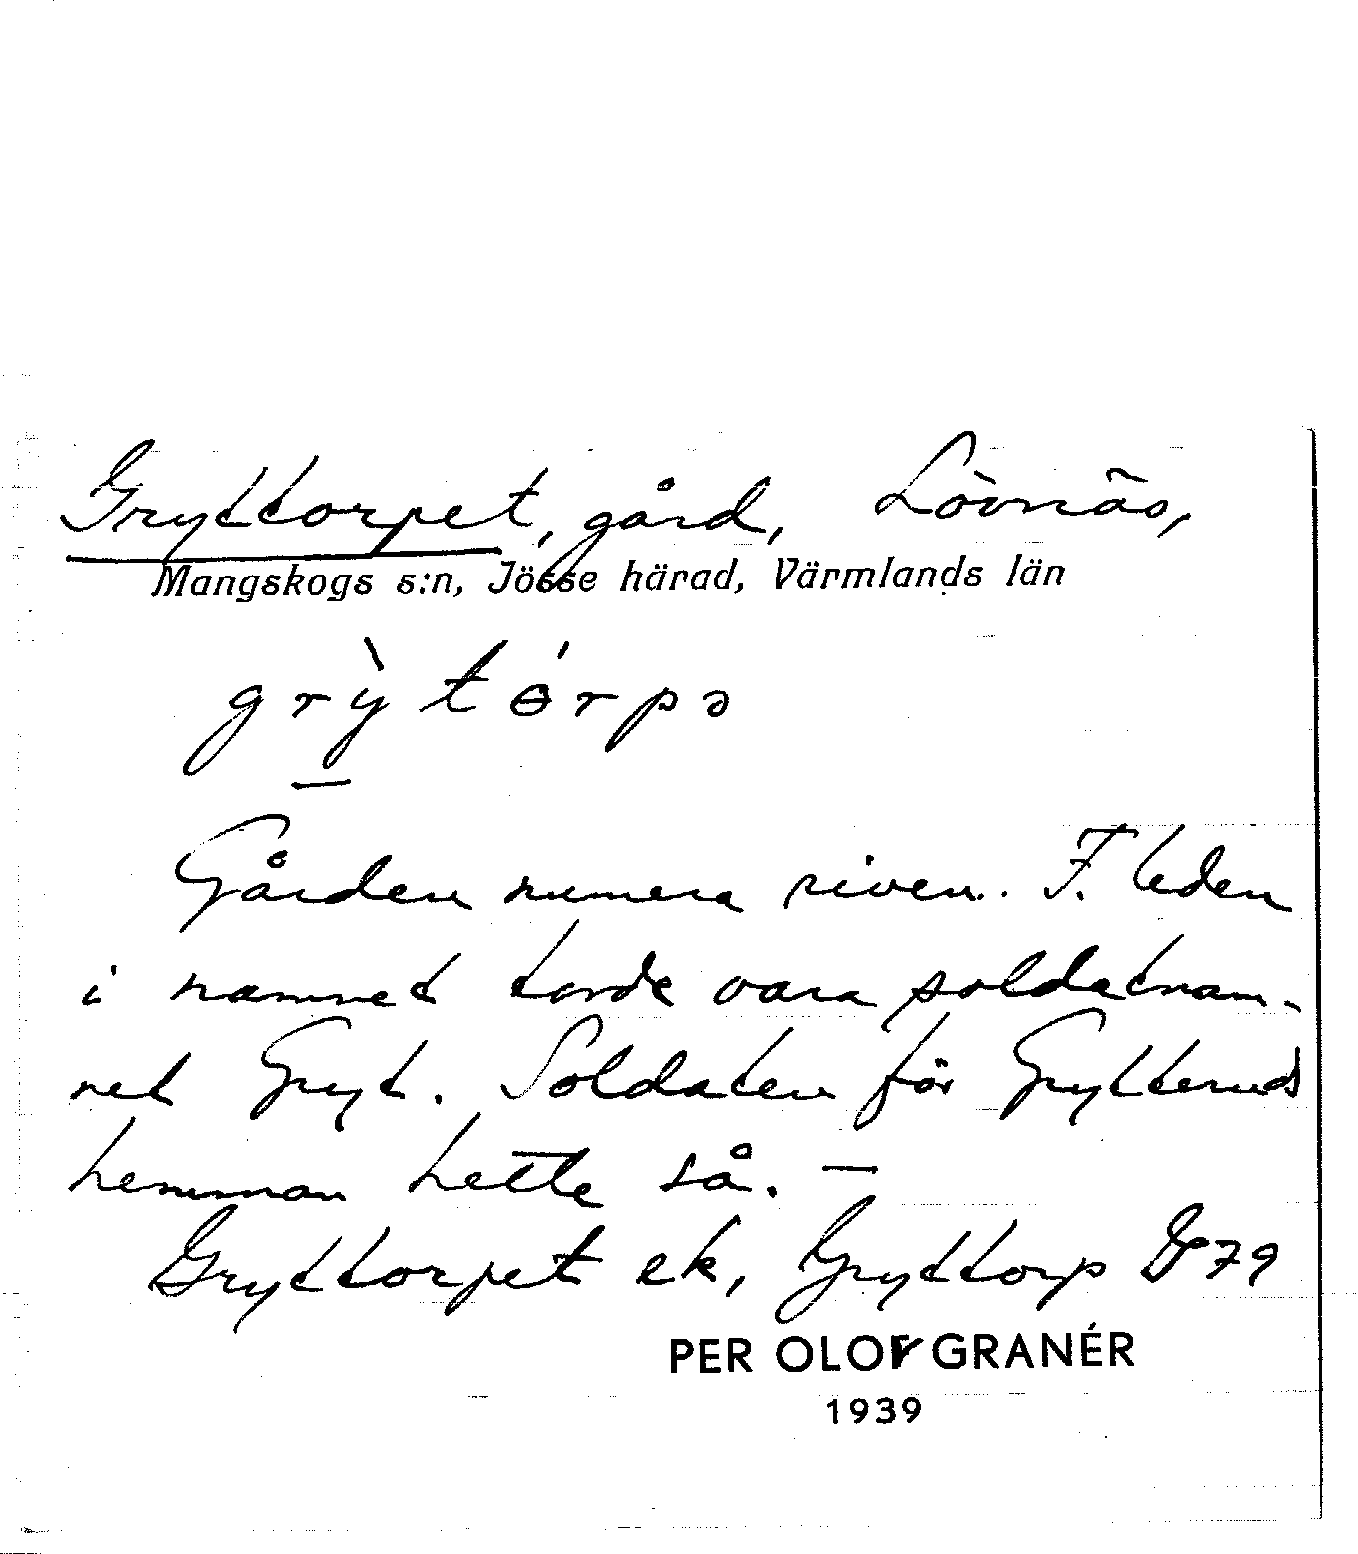 Gryttorpet, gård, Lövnäs,
Mangskogs s:n, Jösse härad, Värmlands län
grỳtɵ́rpə
Gården numera riven. F. leden
i namnet torde vara soldatnam-
net Gryt. Soldaten för Grytteruds
hemman hette så. —
Gryttorpet ek, Gryttorp 79
PER OLOF GRANÉR
1939